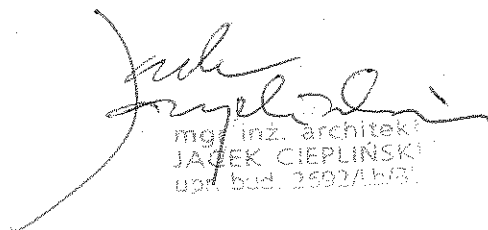 mgr inż. architekt
JACEK CIEPLIŃSKI
upr. bud. 2592/Lb/8